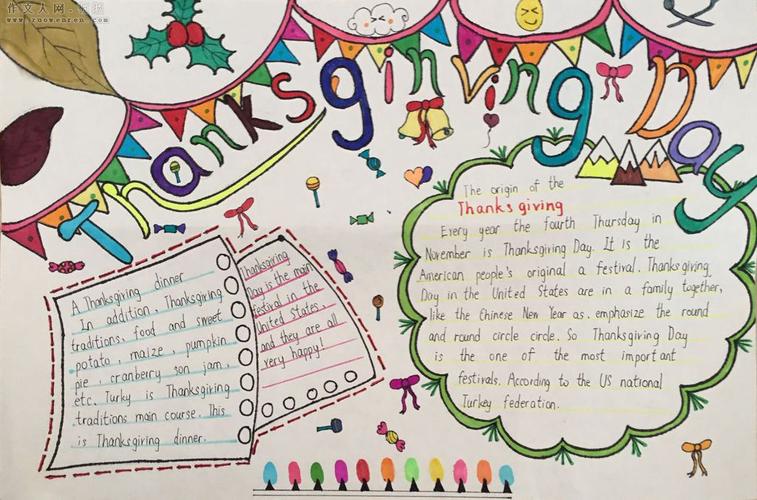 作文人网
www.zuowenren.com
Thanksginving Day
The origin of the
Thanks giving
Every year the fourth Thursday in
November is Thanksgiving Day. It is the
American people's original a festival. Thanksgiving
Day in the United States are in a family together,
like the Chinese New Year as. emphasize the round
and round circle circle. So Thanksgiving Day
is the one of the most important
festivals. According to the US national
Turkey federation.
A Thanksgiving dinner
In addition, Thanksgiving
traditions, food and sweet
potato, maize, pumpkin
pie, cranberry son jam,
etc. Turky is Thanksgiving
traditions main course. This
is Thanksgiving dinner.
Thanksgiving
Day is the main
festival in the
United States,
and they are all
very happy!